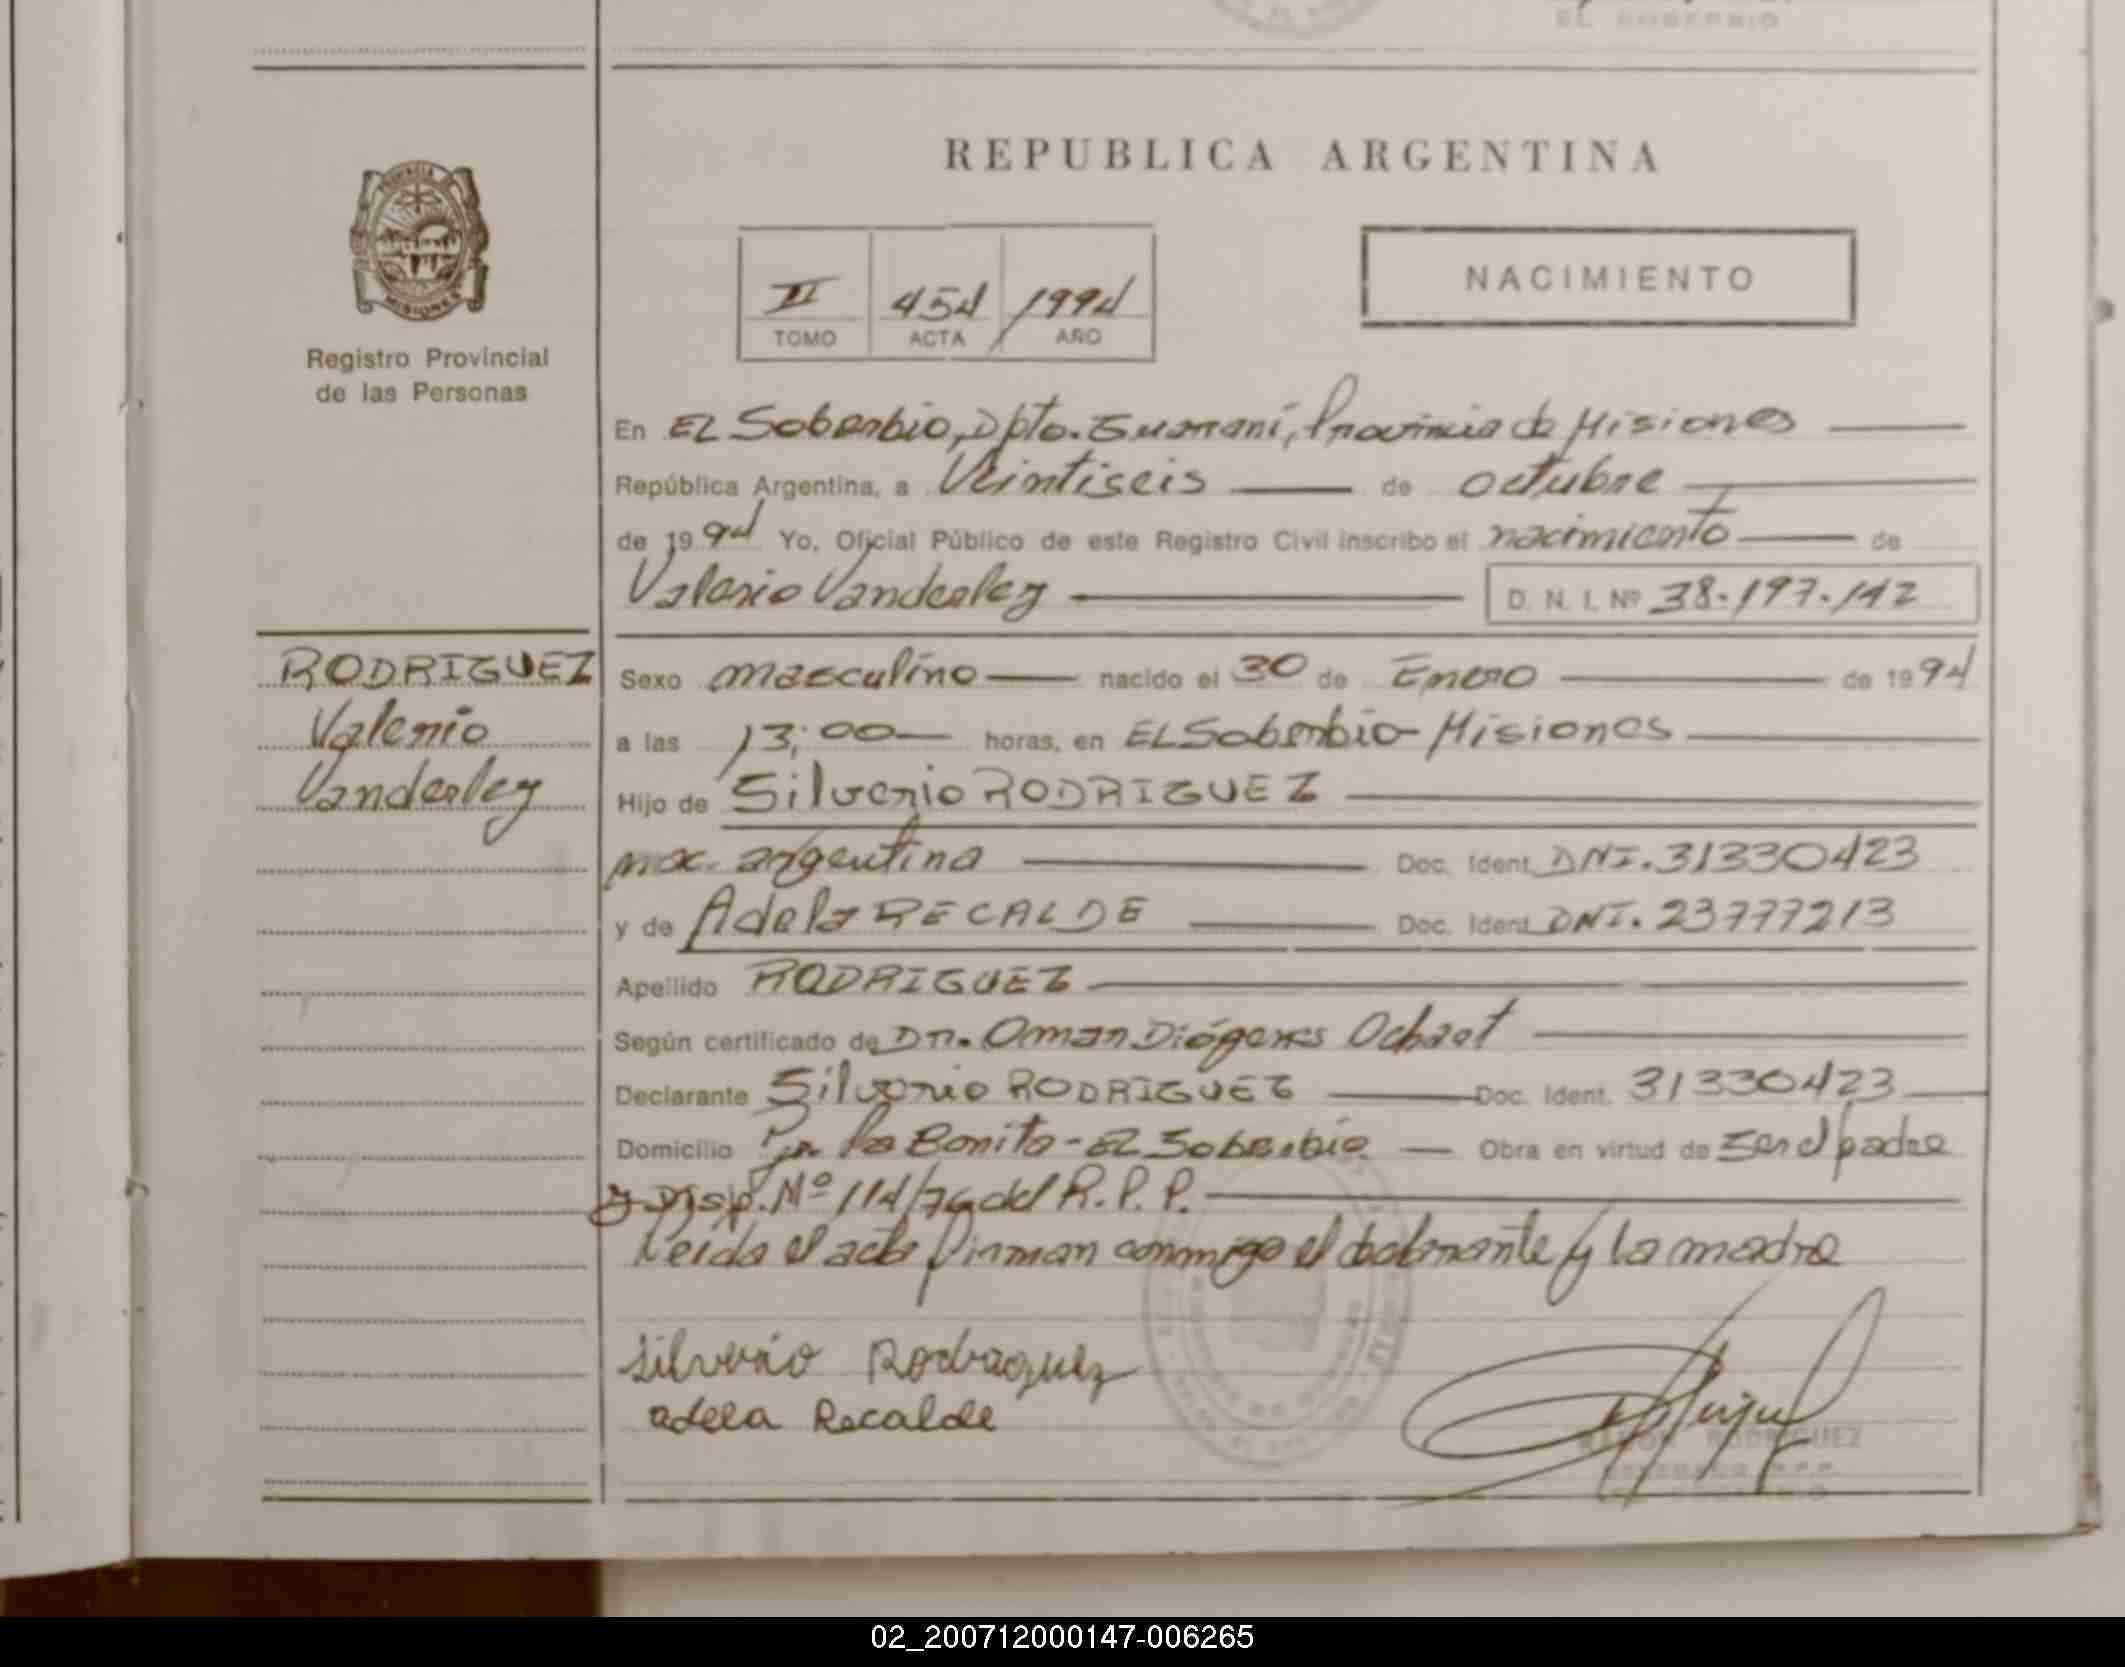 EL SOBERBIO
REPUBLICA ARGENTINA
PROVINCIA DE
MISIONES
Registro Provincial
de las Personas
II 454 1994
TOMO ACTA AÑO
NACIMIENTO
En EL Soberbio, Dpto. Guaraní, Provincia de Misiones
República Argentina, a Veintiseis de octubre
de 1994 Yo, Oficial Público de este Registro Civil inscribo el nacimiento de
Valerio Vanderley D. N. I. Nº 38.197.142
RODRIGUEZ
Valerio
Vanderley
Sexo masculino nacido el 30 de Enero de 1994
a las 13:00 horas, en EL Soberbio-Misiones
Hijo de Silverio RODRIGUEZ
nac. argentina Doc. Ident. DNI. 31330423
y de Adela RECALDE Doc. Ident. DNI. 23777213
Apellido RODRIGUEZ
Según certificado de Dr. Omar Diógenes Ochaet
Declarante Silverio RODRIGUEZ Doc. Ident. 31330423
Domicilio Pje. La Bonita - EL Soberbio Obra en virtud de ser el padre
y Disp. Nº 114/76 del R.P.P.
Leida el acta firman conmigo el declarante y la madre
silverio Rodraguez
adela Recalde
RAMON RODRIGUEZ
DELEGADO R.P.P.
02_200712000147-006265